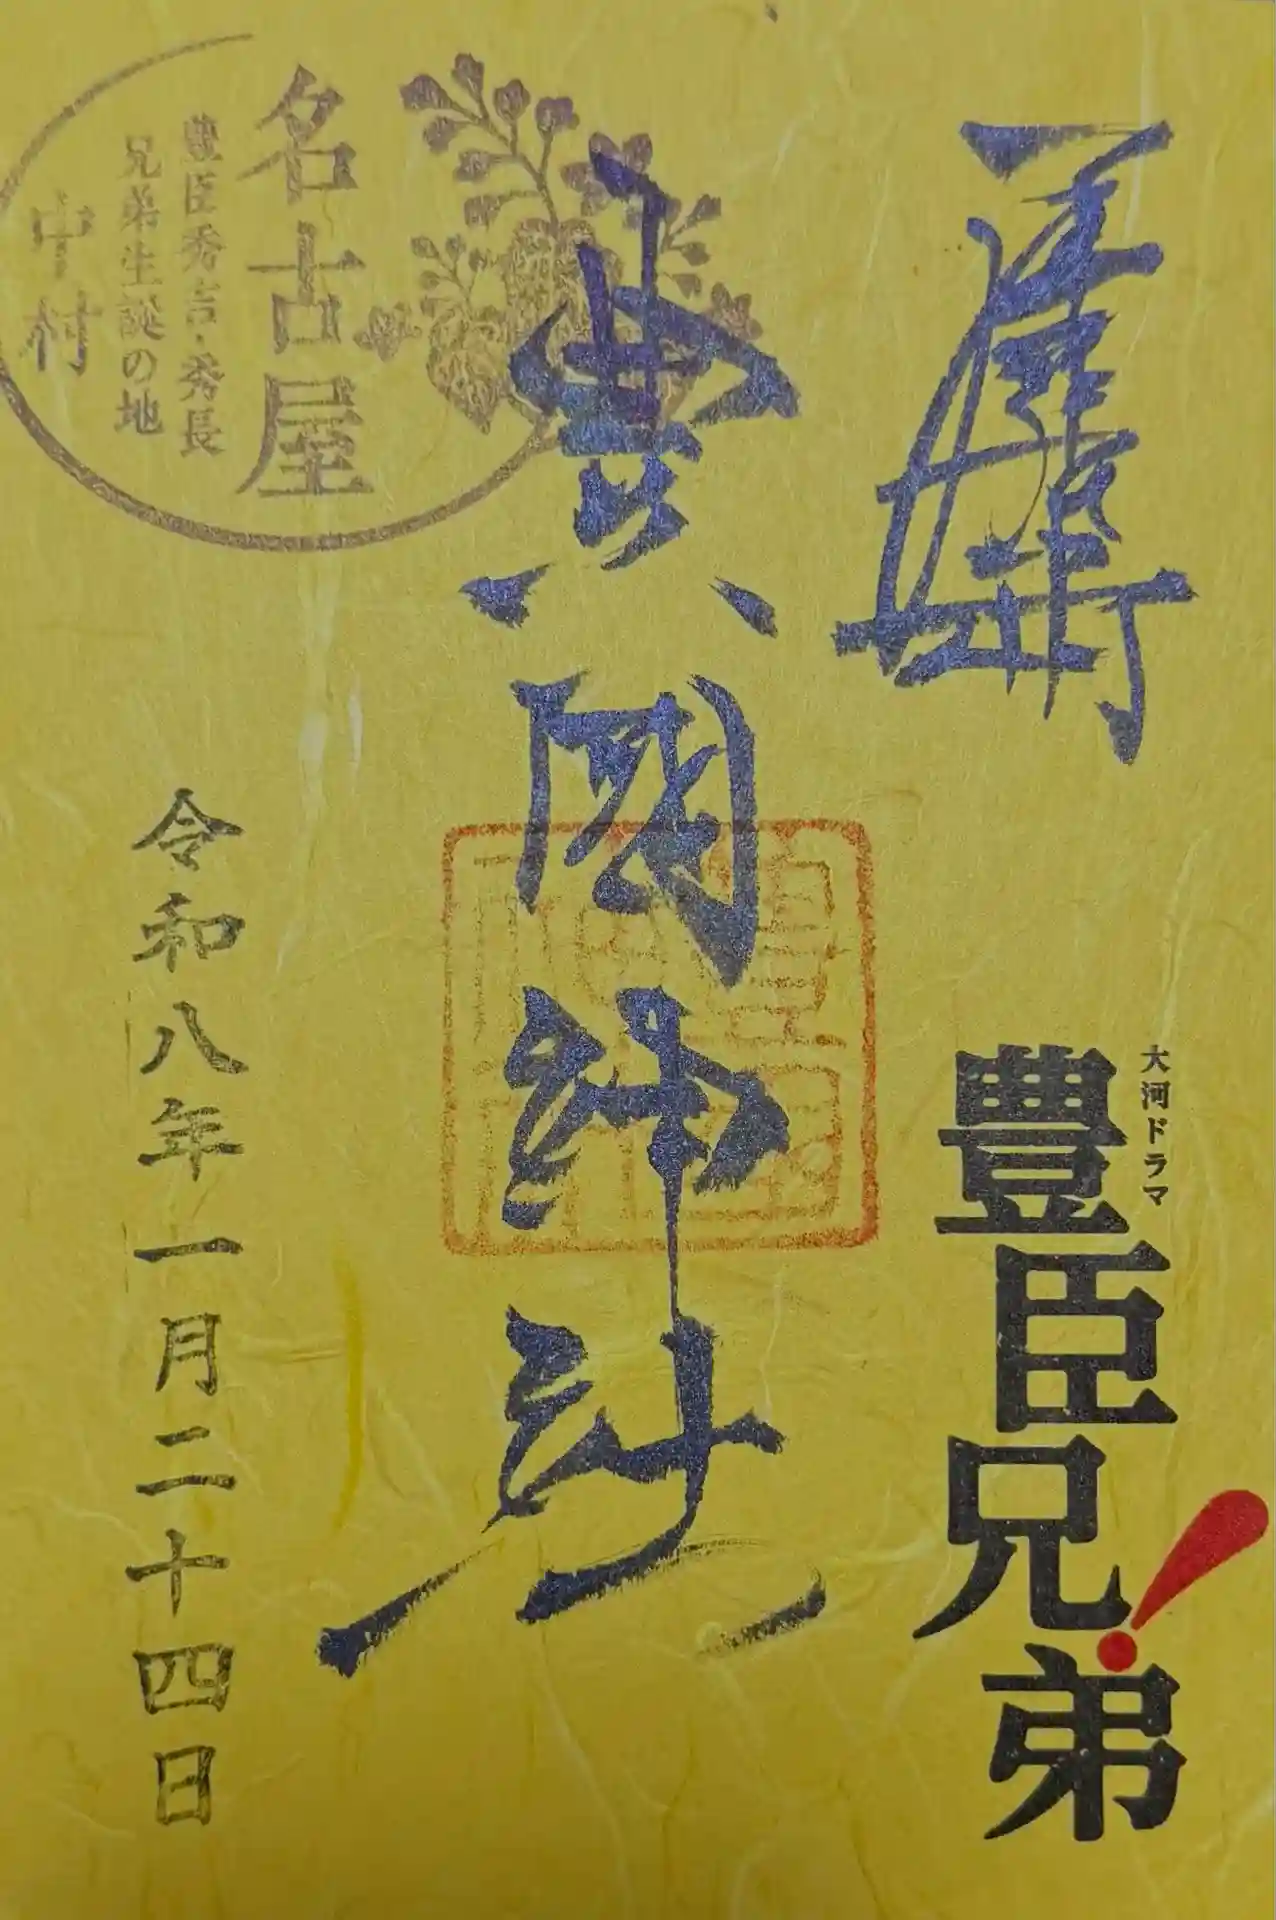 大河ドラマ
豊臣兄弟!
豊國神社
名古屋
豊臣秀吉・秀長
兄弟生誕の地
中村
令和八年一月二十四日